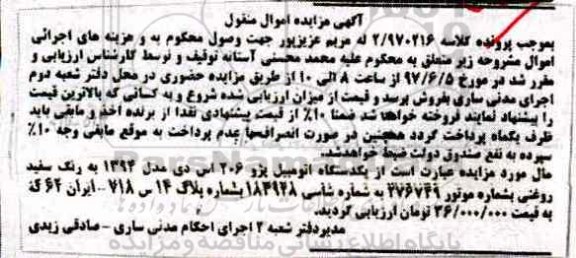 آگهی مزایده اموال منقول
بموجب پرونده کلاسه ۲/۹۷۰۲۱۶ له مریم عزیزپور جهت وصول محکوم به و هزینه های اجرائی
اموال مشروحه زیر متعلق به محکوم علیه محمد محسنی آستانه توقیف و توسط کارشناس ارزیابی و
مقرر شد در مورخ ۹۷/۶/۵ از ساعت ۸ الی ۱۰ از طریق مزایده حضوری در محل دفتر شعبه دوم
اجرای مدنی ساری بفروش برسد و قیمت از میزان ارزیابی شده شروع و به کسانی که بالاترین قیمت
را پیشنهاد نمایند فروخته خواهد شد ضمنا ۱۰٪ از قیمت پیشنهادی نقدا از برنده اخذ و مابقی باید
ظرف یکماه پرداخت گردد همچنین در صورت انصراف عدم پرداخت به موقع مابقی وجه ۱۰٪
سپرده به نفع صندوق دولت ضبط خواهدشد.
مال مورد مزایده عبارت است از یکدستگاه اتومبیل پژو ۲۰۶ اس دی مدل ۱۳۹۲ به رنگ سفید
روغنی بشماره موتور ۴۷۶۷۴۹ به شماره شاسی ۱۸۳۹۴۸ بشماره پلاک ۱۴ س ۷۱۸ -- ایران ۶۴ که
به قیمت ۳۶/۰۰۰/۰۰۰ تومان ارزیابی گردید.
مدیردفتر شعبه ۲ اجرای احکام مدنی ساری - صادقی زیدی
پایگاه اطلاع رسانی مناقصه و مزایده